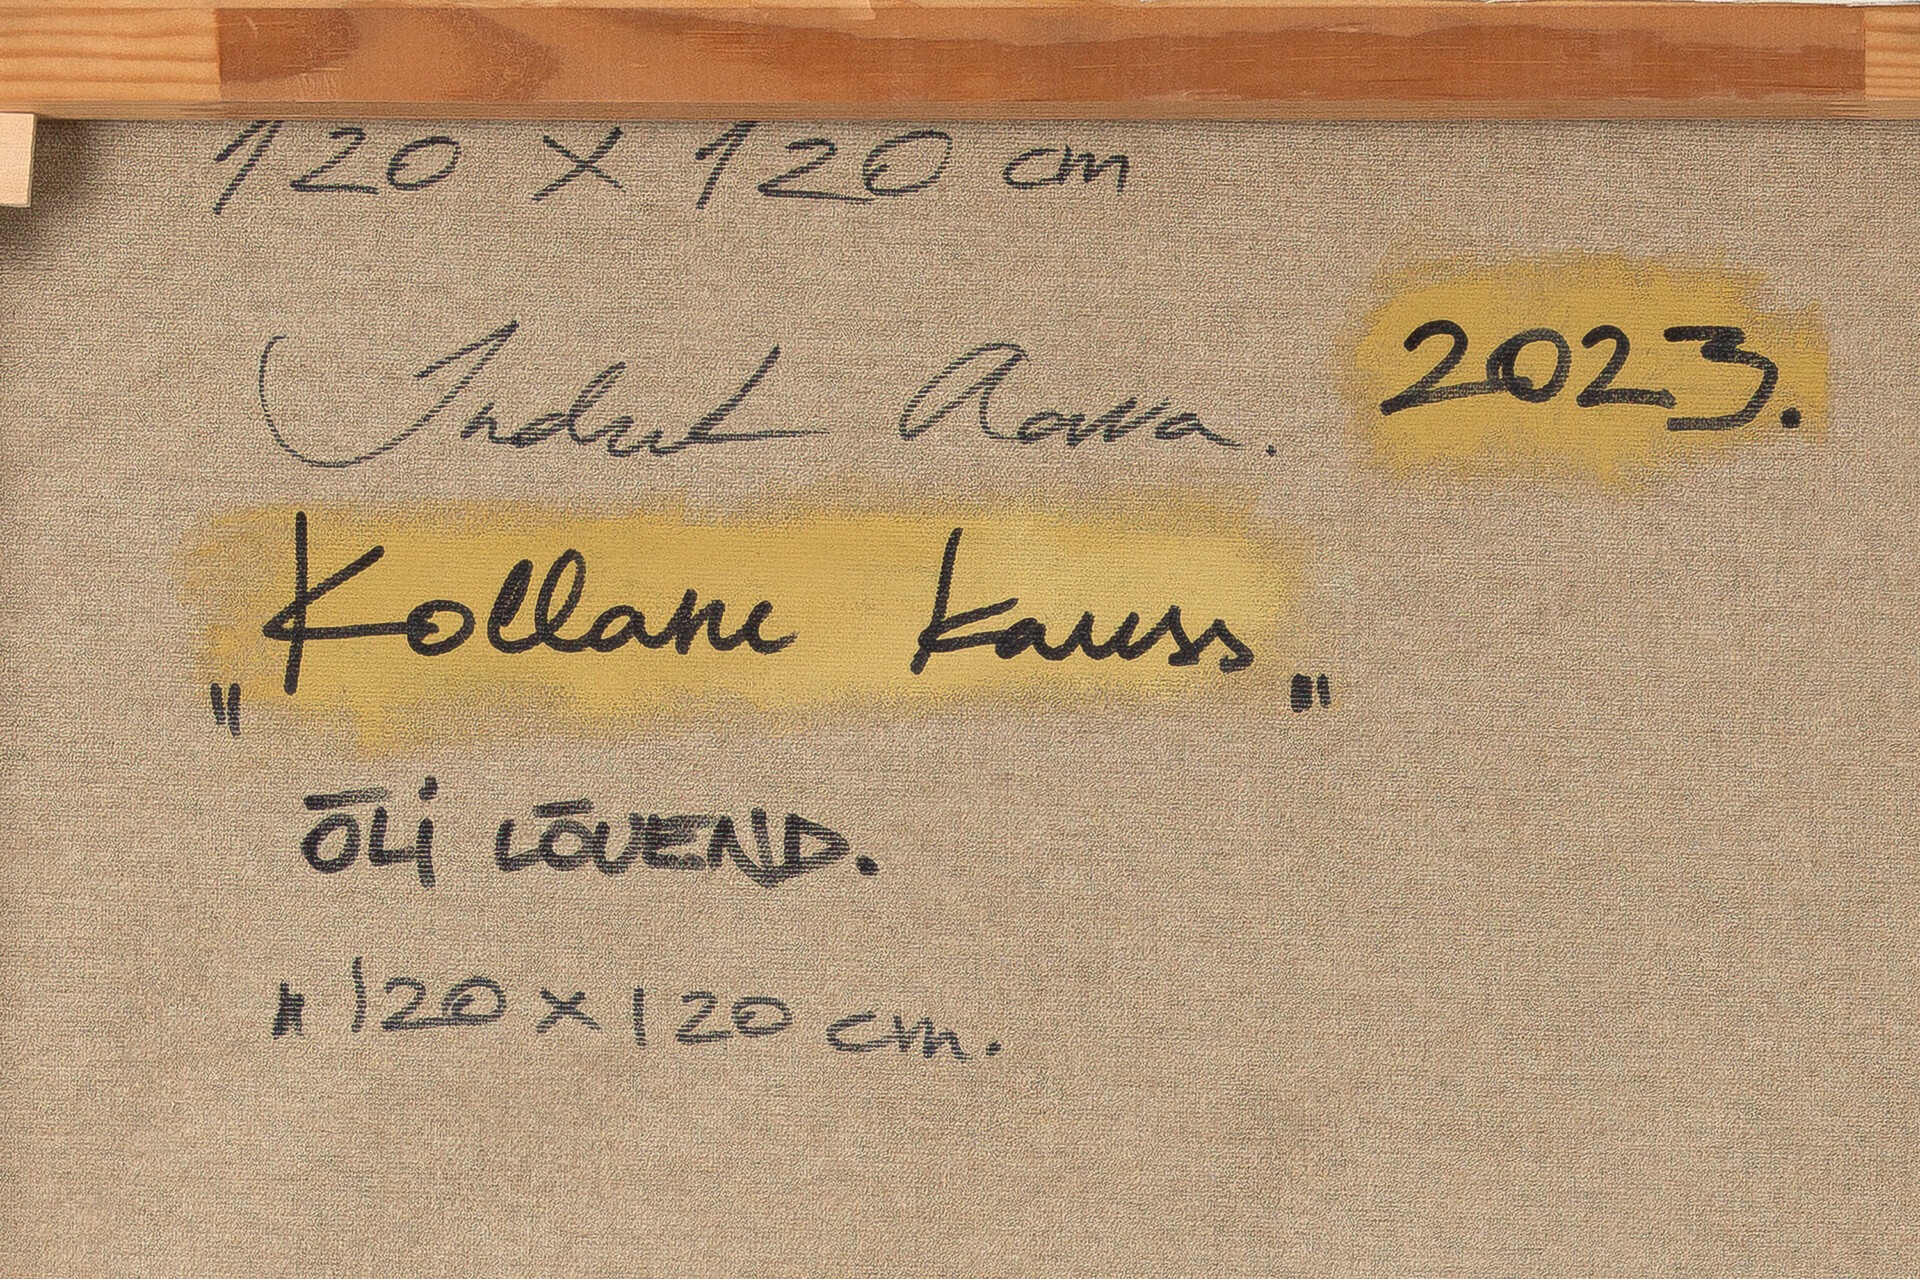 120 x 120 cm
Indrek Aavva. 2023.
„Kollane kauss"
ÕLI LÕUEND.
120 x 120 cm.